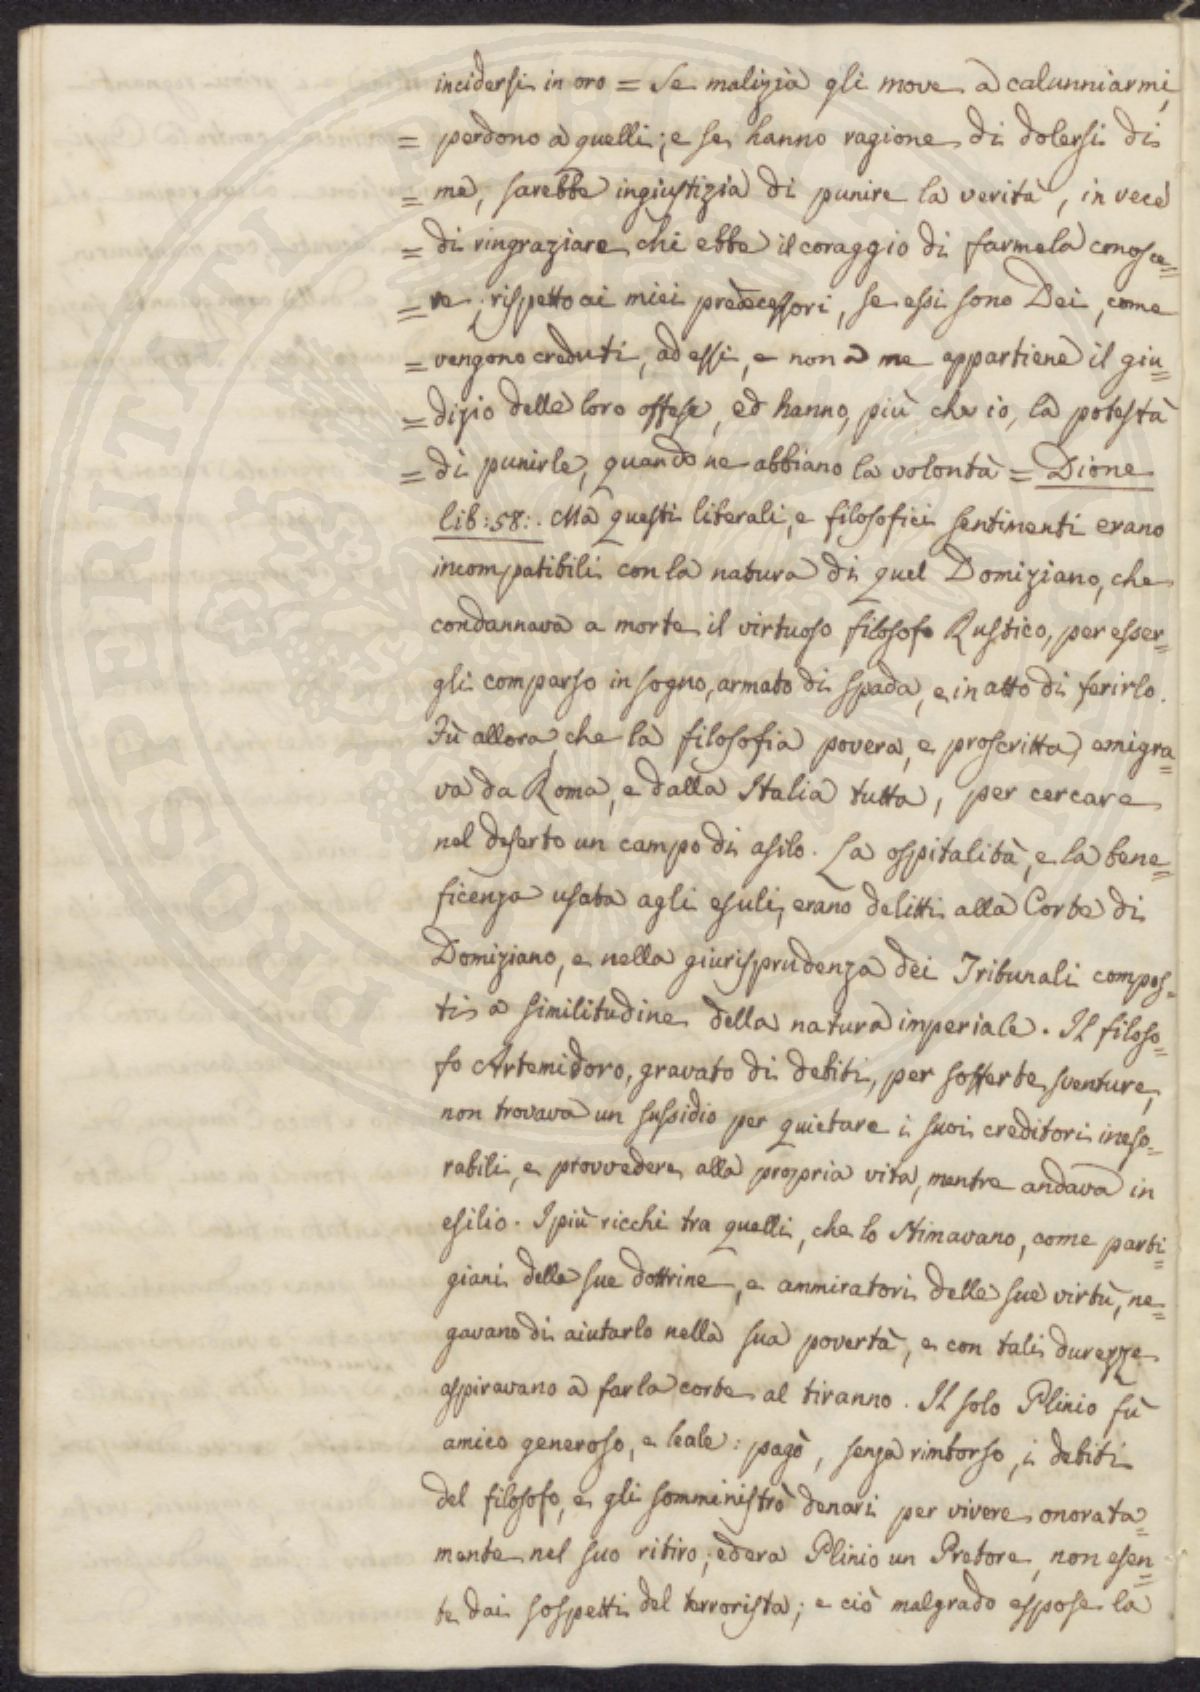 incidersi in oro = Se malizia gli move a calunniarmi,
= perdono a quelli; e se hanno ragione di dolersi di
= me, sarebbe ingiustizia di punire la verità, in vece
= di ringraziare chi ebbe il coraggio di farmela conosce=
= re; rispetto ai miei predecessori, se essi sono Dei, come
= vengono creduti, ad essi, e non a me appartiene il giu=
= dizio delle loro offese, ed hanno, più che io, la potestà
= di punirle, quando ne abbiano la volontà = Dione
lib: 58:. Ma questi liberali, e filosofici sentimenti erano
incompatibili con la natura di quel Domiziano, che
condannava a morte il virtuoso filosofo Rustico, per esser=
gli comparso in sogno, armato di spada, e in atto di ferirlo.
Fù allora, che la filosofia povera, e proscritta, emigra=
va da Roma, e dalla Italia tutta, per cercare
nel deserto un campo di asilo. La ospitalità, e la bene=
ficenza usata agli esuli, erano delitti alla Corte di
Domiziano, e nella giurisprudenza dei Tribunali compos=
ti a similitudine della natura imperiale. Il filoso=
fo Artemidoro, gravato di debiti, per sofferte sventure,
non trovava un sussidio per quietare i suoi creditori ineso=
rabili, e provvedere alla propria vita, mentre andava in
esilio. I più ricchi tra quelli, che lo stimavano, come parti=
giani delle sue dottrine, e ammiratori delle sue virtù, ne=
gavano di aiutarlo nella sua povertà, e con tali durezze
aspiravano a far la corte al tiranno. Il solo Plinio fù
amico generoso, e leale: pagò, senza rimborso, i debiti
del filosofo, e gli somministrò denari per vivere onorata=
mente nel suo ritiro; ed era Plinio un Pretore, non esen=
te dai sospetti del terrorista; e ciò malgrado espose la
PROSPERITATI PUBLICAE